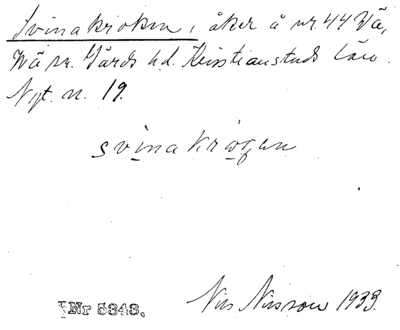 Svinakroken, åker å nr. 44 Vä,
Wä sn. Gärds hd. Kristianstads län.
Nyt. n. 19.
svinakrågen
Nr 5343.
Nils Nilsson 1933.